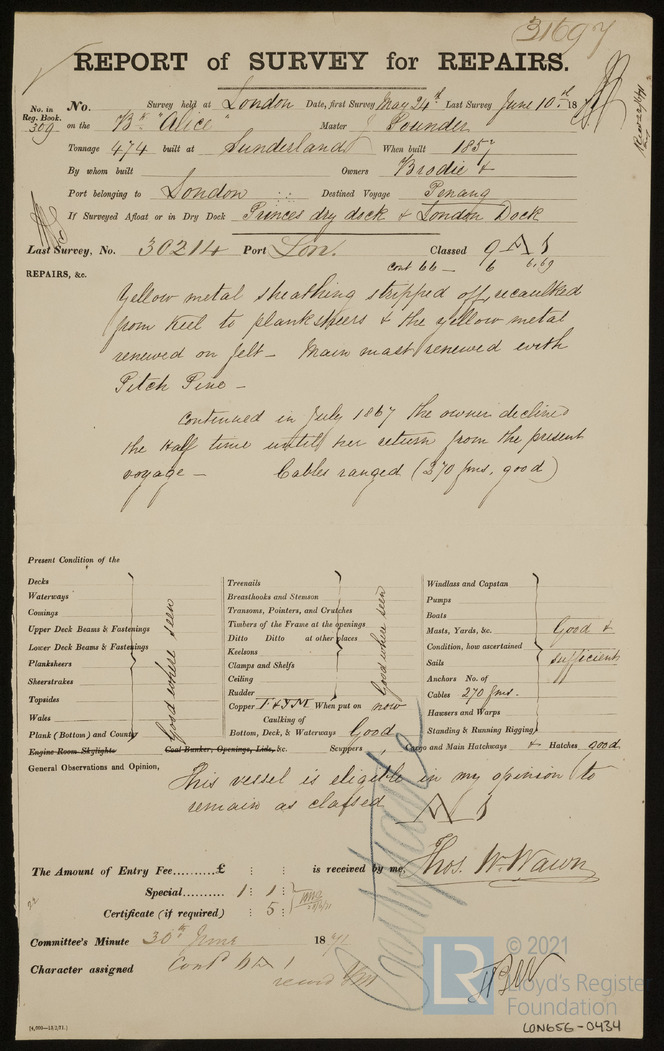 31697
REPORT of SURVEY for REPAIRS.
No. in Reg. Book.
309
No. Survey held at London Date, first Survey May 24th Last Survey June 10th 18
on the Bk "Alice" Master Pounder
Tonnage 474 built at Sunderland When built 1857
By whom built Owners Brodie &
Port belonging to London Destined Voyage Penang
If Surveyed Afloat or in Dry Dock Princes dry dock & London Dock
Last Survey, No. 30214 Port Lon. Classed 9 A 1
cont 66 — 6 6.69
REPAIRS, &c.
Yellow metal sheathing stripped off, recaulked
from Keel to planksheers & the yellow metal
renewed on felt — Main mast renewed with
Pitch Pine —
Continued in July 1867 the owner declined
the Half time until her return from the present
voyage — Cables ranged (270 fms, good)
Present Condition of the
Decks
Waterways
Comings
Upper Deck Beams & Fastenings
Lower Deck Beams & Fastenings
Planksheers
Sheerstrakes
Topsides
Wales
Plank (Bottom) and Counter
Good where seen
Engine Room Skylights Coal Bunker, Openings, Lids, &c.
Treenails
Breasthooks and Stemson
Transoms, Pointers, and Crutches
Timbers of the Frame at the openings
Ditto Ditto at other places
Keelsons
Clamps and Shelfs
Ceiling
Rudder
Good where seen
Copper F & YM When put on now
Caulking of
Bottom, Deck, & Waterways Good
Scuppers
Windlass and Capstan
Pumps
Boats
Masts, Yards, &c.
Condition, how ascertained
Sails
Anchors No. of
Cables 270 fms.
Hawsers and Warps
Standing & Running Rigging
Good &
sufficient
Cargo and Main Hatchways & Hatches good
General Observations and Opinion,
This vessel is eligible in my opinion to
remain as classed A 1
The Amount of Entry Fee..........£ : : is received by me,
Thos. W. Wawn
Special.......... 1 : 1 :
Certificate (if required) : 5 :
Committee's Minute 30th June 18
Character assigned Contd 6 A 1
© 2021
LR
Lloyd's Register
Foundation
LON656-0434